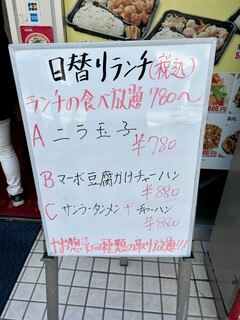 日替りランチ(税込)
ランチの食べ放題 780〜
A ニラ玉子
¥780
B マーボ豆腐かけチャーハン
¥880
C サンラータンメン+チャーハン
¥880
+お惣菜 種類の取り放題!!!